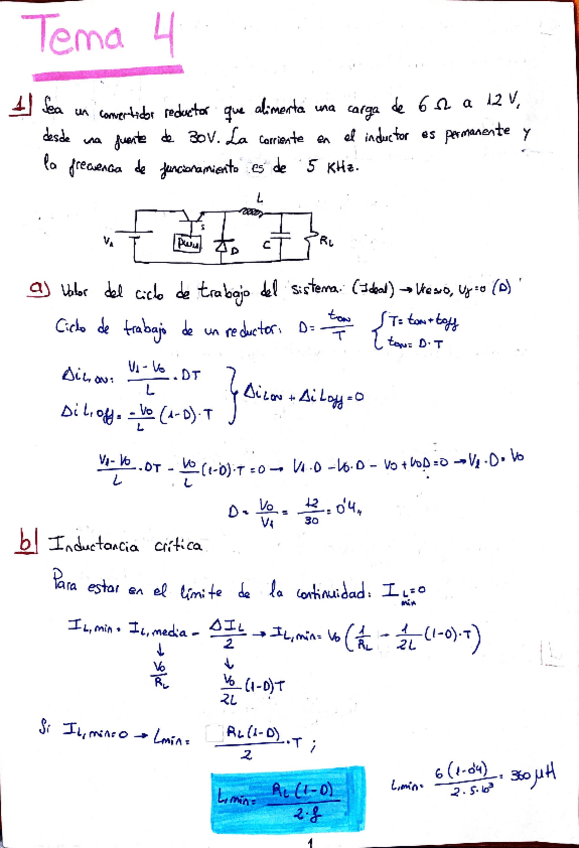 Tema 4
1| Sea un convertidor reductor que alimenta una carga de 6 Ω a 12 V,
desde una fuente de 30V. La corriente en el inductor es permanente y
la frecuencia de funcionamiento es de 5 KHz.
L
V1 PWM S D C RL
a) Valor del ciclo de trabajo del sistema. (Ideal) → VCESAT≈0, Vf=0 (D)
Ciclo de trabajo de un reductor: D = tON/T { T = tON + tOff
tON = D·T
ΔiL,ON = (V1 - V0)/L · DT
ΔiL,off = -V0/L (1-D)·T } ΔiLON + ΔiLOff = 0
(V1-V0)/L · DT - V0/L (1-D)·T = 0 → V1·D - V0·D - V0 + V0D = 0 → V1·D = V0
D = V0/V1 = 12/30 = 0'4
b| Inductancia crítica
Para estar en el límite de la continuidad: IL min = 0
IL,min = IL,media - ΔIL/2 → IL,min = V0 (1/RL - 1/2L (1-D)·T)
↓ ↓
V0/RL V0/2L (1-D)T
Si IL,min=0 → Lmin = RL(1-D)/2 · T ;
L,min = RL(1-D)/2·f
L,min = 6(1-0'4)/2·5·10³ = 360 μH
1